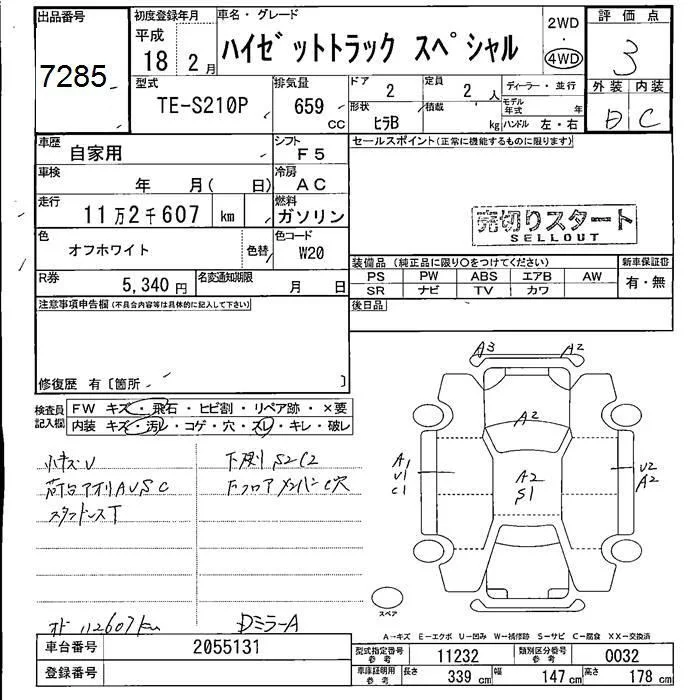 出品番号 初度登録年月 車名・グレード 2WD 評価点
7285 平成 18年 2月 ハイゼットトラック スペシャル 4WD 3
型式 TE-S210P 排気量 659 cc ドア 2 定員 2人 ディーラー・並行 外装 内装
形状 ヒラB 積載 kg モデル年式 年 ハンドル 左・右 D C
車歴 自家用 シフト F5 セールスポイント(正常に機能するものに限ります)
車検 年 月( 日) 冷房 AC
走行 11万2千607 km 燃料 ガソリン
売切りスタート
SELLOUT
色 オフホワイト 色替 色コード W20
装備品(純正品に限り○をつけてください) 新車保証書
PS PW ABS エアB AW 有・無
SR ナビ TV カワ
R券 5,340円 名変通知期限 月 日
注意事項申告欄(不具合内容等は具体的に記入して下さい) 後日品
修復歴 有〔箇所 〕
検査員記入欄 FW キズ・飛石・ヒビ割・リペア跡・×要
内装 キズ・汚レ・コゲ・穴・スレ・キレ・破レ
A3 A2
A2
A1 U1 C1
A2 S1
U2 A2
小キズU 下廻りS2C2
荷台アオリAUSC Fフロアメンバー C穴
スタッドレスT
オド 112607km DミラーA
スペア
A―キズ E―エクボ U―凹み W―補修跡 S―サビ C―腐食 XX―交換済
車台番号 2055131 型式指定番号 参考 11232 類別区分番号 参考 0032
登録番号 車庫証明用 参考 長さ 339cm 幅 147cm 高さ 178cm